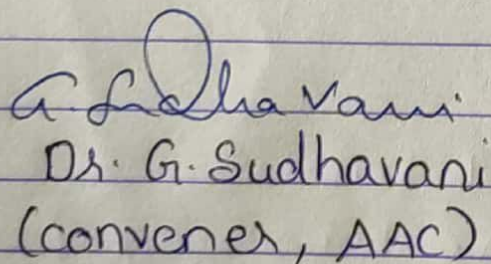 G. Sudhavani
Dr. G. Sudhavani
(convener, AAC)